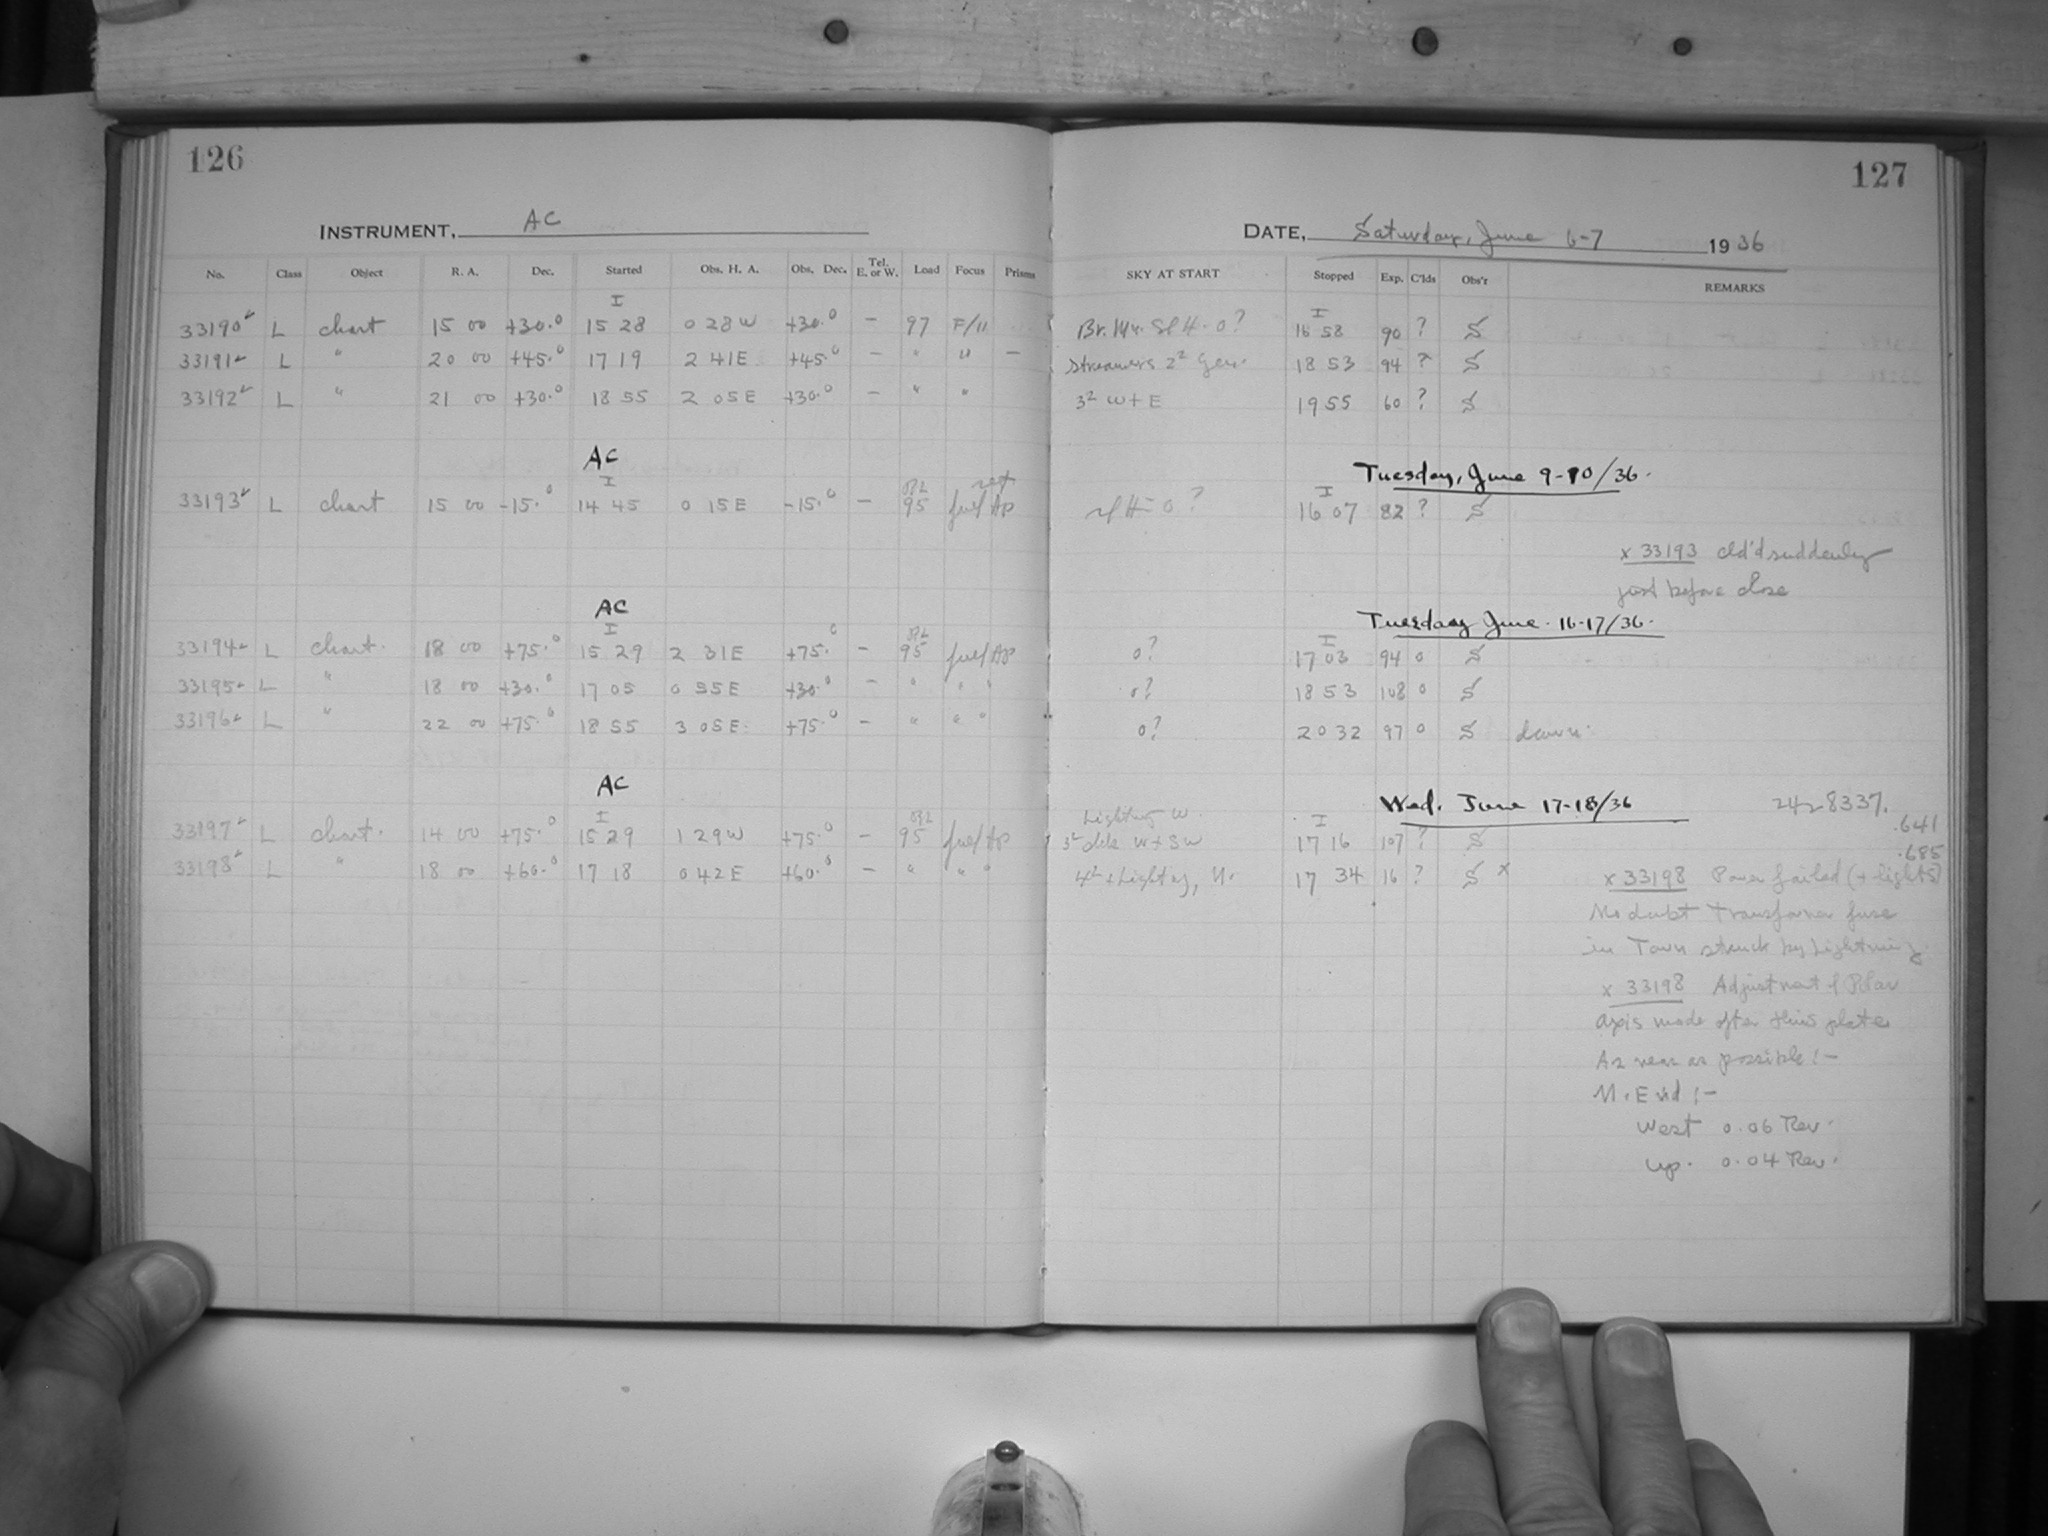 126
127
INSTRUMENT, AC
DATE, Saturday, June 6-7 1936
No. Class Object R. A. Dec. Started Obs. H. A. Obs. Dec. Tel. E. or W. Load Focus Prisms SKY AT START Stopped Exp. C'lds Obs'r REMARKS
I I
33190 L chart 15 00 +30.° 15 28 0 28 W +30.° - 97 F/11 0? 16 58 90 ? S
33191 L " 20 00 +45.° 17 19 2 41 E +45.° - " " - Streamers 2² Gen. 18 53 94 ? S
33192 L " 21 00 +30.° 18 55 2 05 E +30.° - " " 3² W + E 19 55 60 ? S
AC Tuesday, June 9-10/36.
I I
33193 L chart 15 00 -15.° 14 45 0 15 E -15.° - 95 full Ap 0? 16 07 82 ? S
x 33193 cld'd suddenly
just before close
AC Tuesday June 16-17/36.
I I
33194 L chart. 18 00 +75.° 15 29 2 31 E +75.° - 95 full Ap 0? 17 03 94 0 S
33195 L " 18 00 +30.° 17 05 0 55 E +30.° - " " " 0? 18 53 108 0 S
33196 L " 22 00 +75.° 18 55 3 05 E. +75.° - " " " 0? 20 32 97 0 S dawn.
AC Wed. June 17-18/36 8337.
I Lighting W. I .641
33197 L chart. 14 00 +75.° 15 29 1 29 W +75.° - 95 full Ap W + SW 17 16 107 ? S
.685
33198 L " 18 00 +60.° 17 18 0 42 E +60.° - " " " 17 34 16 ? S x
x 33198 Power failed (+ lights)
No doubt transformer fuse
in Town struck by Lightning.
x 33198 Adjustment of Polar
axis made after this plate
As near as possible:-
N. End:-
West 0.06 Rev.
Up. 0.04 Rev.